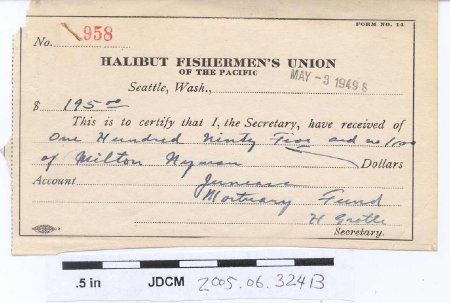 FORM NO. 14
No. 958
HALIBUT FISHERMEN'S UNION
OF THE PACIFIC
Seattle, Wash., MAY -3 1949
$ 195.00
This is to certify that I, the Secretary, have received of
One Hundred Ninty Five and no/100
of Milton Nyman Dollars
Account
Mortuary Fund
Secretary.
.5 in JDCM 2005.06.324B